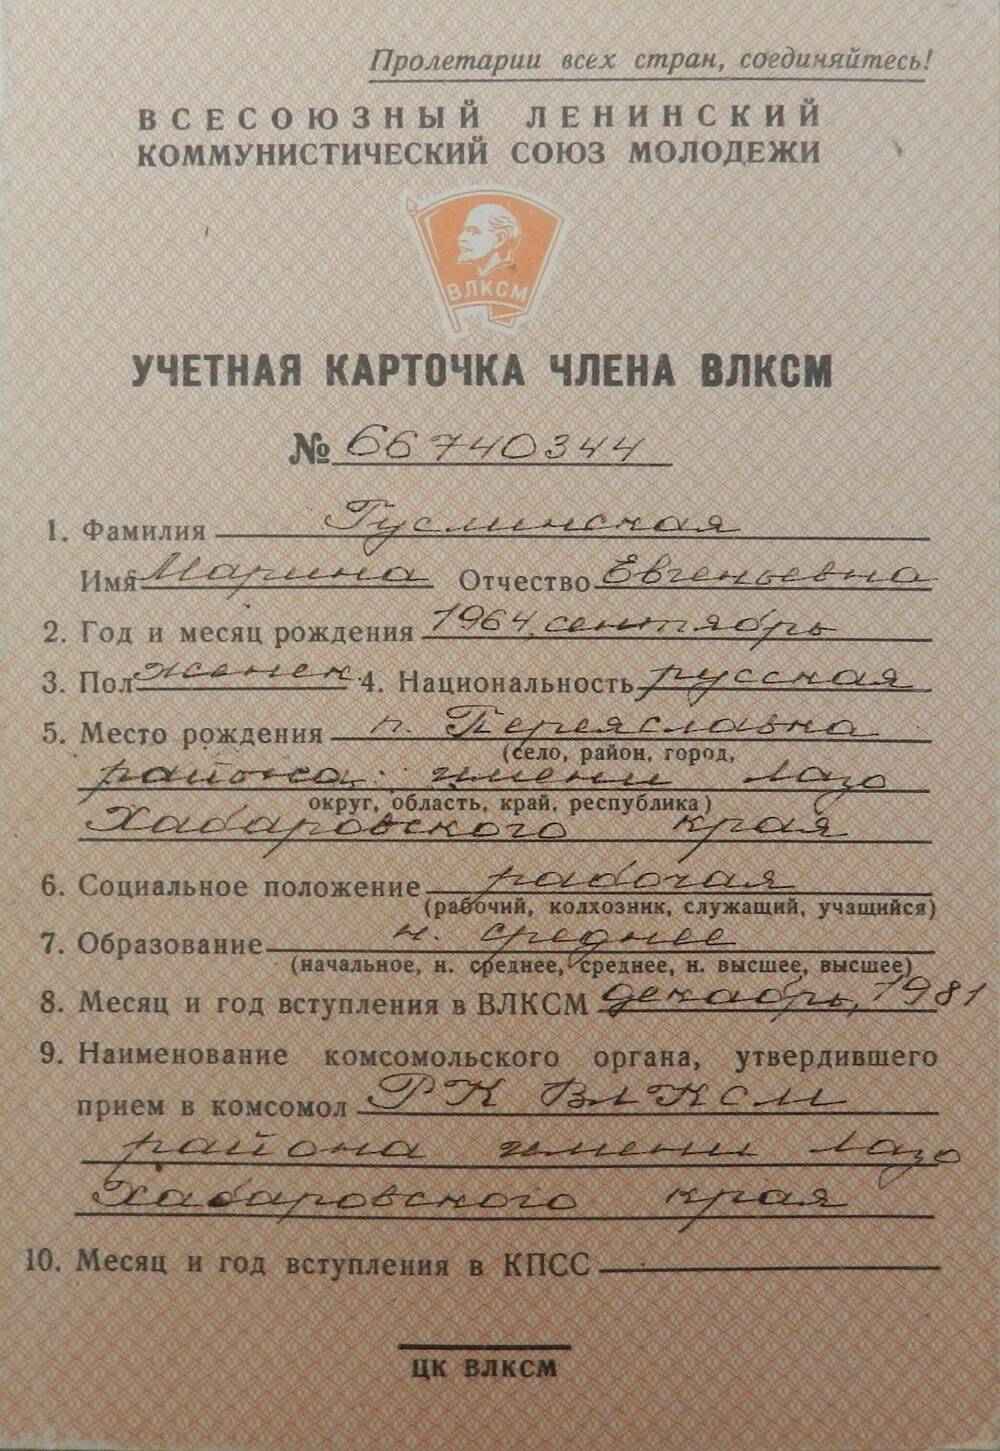 Пролетарии всех стран, соединяйтесь!
ВСЕСОЮЗНЫЙ ЛЕНИНСКИЙ
КОММУНИСТИЧЕСКИЙ СОЮЗ МОЛОДЕЖИ
ВЛКСМ
УЧЕТНАЯ КАРТОЧКА ЧЛЕНА ВЛКСМ
№ 66740344
1. Фамилия Гуслинская
Имя Марина Отчество Евгеньевна
2. Год и месяц рождения 1964, сентябрь
3. Пол женск. 4. Национальность русская
5. Место рождения п. Переяславка
(село, район, город,
района имени Лазо
округ, область, край, республика)
Хабаровского края
6. Социальное положение рабочая
(рабочий, колхозник, служащий, учащийся)
7. Образование н. среднее
(начальное, н. среднее, среднее, н. высшее, высшее)
8. Месяц и год вступления в ВЛКСМ декабрь, 1981
9. Наименование комсомольского органа, утвердившего
прием в комсомол РК ВЛКСМ
района имени Лазо
Хабаровского края
10. Месяц и год вступления в КПСС
ЦК ВЛКСМ